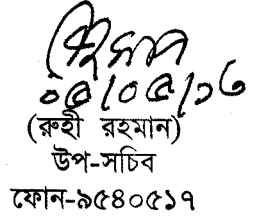 ০৫/০৫/১৬
(রুহী রহমান)
উপ-সচিব
ফোন-৯৫৪০৫১৭